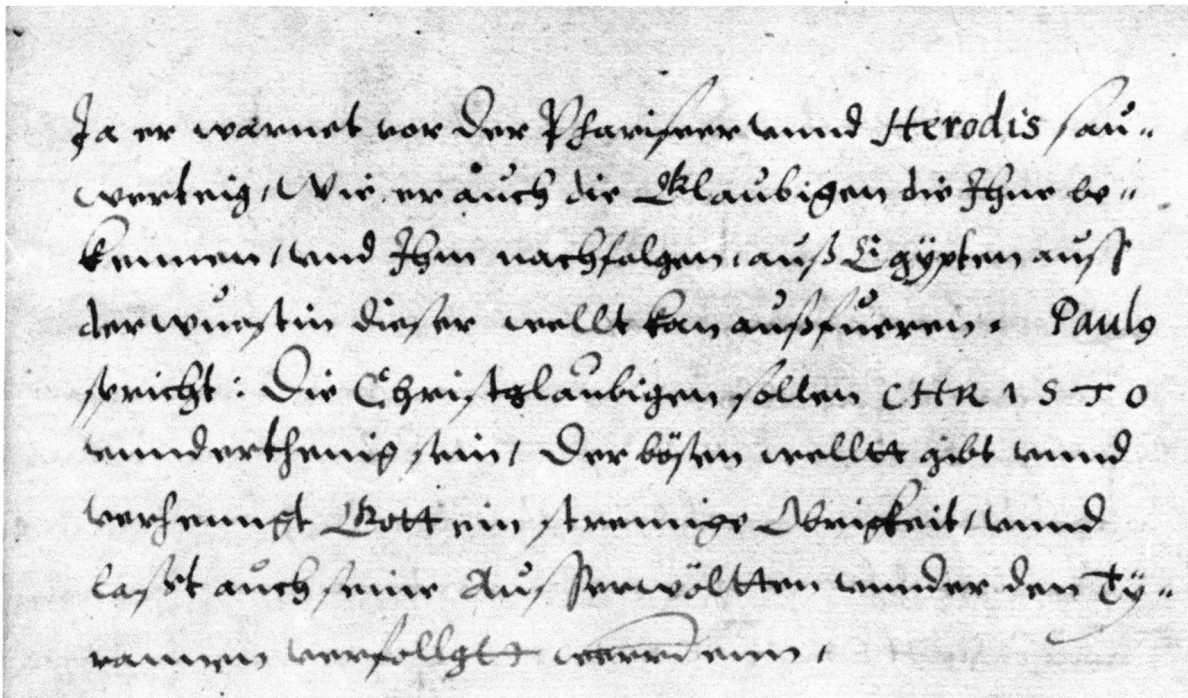 Ja er warnet vor der Phariseer unnd Herodis sau„
werteig, Wie er auch die Glaubigen die Ihne be„
kennen, und Ihm nachfolgen, auß Egÿpten auss
der wuestin dieser wellt kan außfueren. Pauls
spricht: Die Christglaubigen sollen CHRISTO
unnderthenig sein, Der bösen welltt gibt unnd
verhenngt Gott ein strennige Obrigkeit, unnd
lasst auch seine Ausserwöltten unnder den Tÿ„
rannen verfollgtt werrdenn,